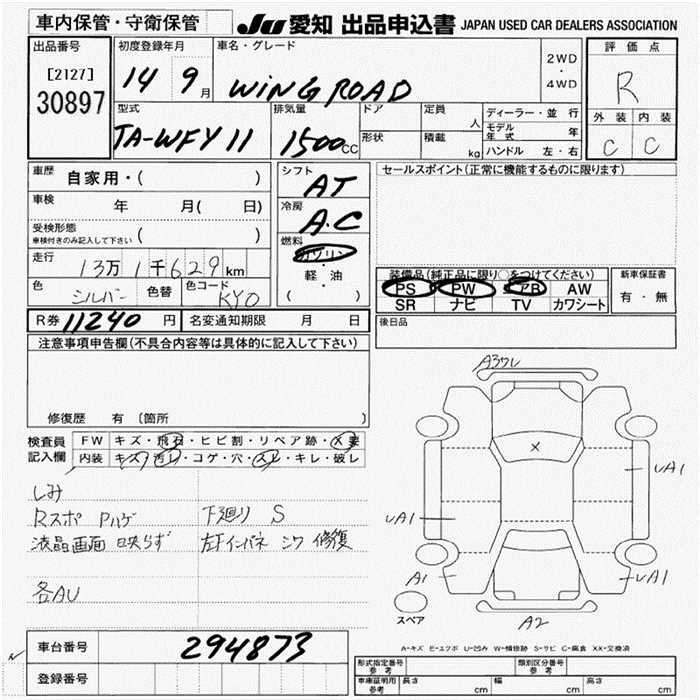 車内保管・守衛保管
Ju 愛知 出品申込書 JAPAN USED CAR DEALERS ASSOCIATION
出品番号
[2127]
30897
初度登録年月
14 9月
車名・グレード
WINGROAD
2WD
・
4WD
評価点
R
外装 内装
C C
型式
TA-WFY11
排気量
1500cc
ドア
形状
定員
人
積載
kg
ディーラー・並行
モデル年式 年
ハンドル 左・右
車歴 自家用・( )
車検 年 月( 日)
受検形態
車検付きのみ記入して下さい ( )
走行 13万1千629km
色 シルバー 色替 色コード KY0
シフト
AT
冷房
A.C
燃料
ガソリン
・
軽・油
( )
セールスポイント(正常に機能するものに限ります)
装備品(純正品に限り○をつけてください)
PS PW エアB AW
SR ナビ TV カワシート
新車保証書
有・無
後日品
R券 11240円 名変通知期限 月 日
注意事項申告欄(不具合内容等は具体的に記入して下さい)
修復歴 有〔箇所 〕
検査員記入欄
FW キズ・飛石・ヒビ割・リペア跡・X要
内装 キズ・汚レ・コゲ・穴・スレ・キレ・破レ
しみ
Rスポ Pハゲ 下廻り S
液晶画面 映らず 左Fインパネ シワ 修復
各AU
A3ワレ
X
UA1
UA1
A1
UA1
A2
スペア
A-キズ E-エクボ U-凹み W-補修跡 S-サビ C-腐食 XX-交換済
車台番号 294873
登録番号
形式指定番号 参考
類別区分番号 参考
車庫証明用 参考 長さ cm 幅 cm 高さ cm